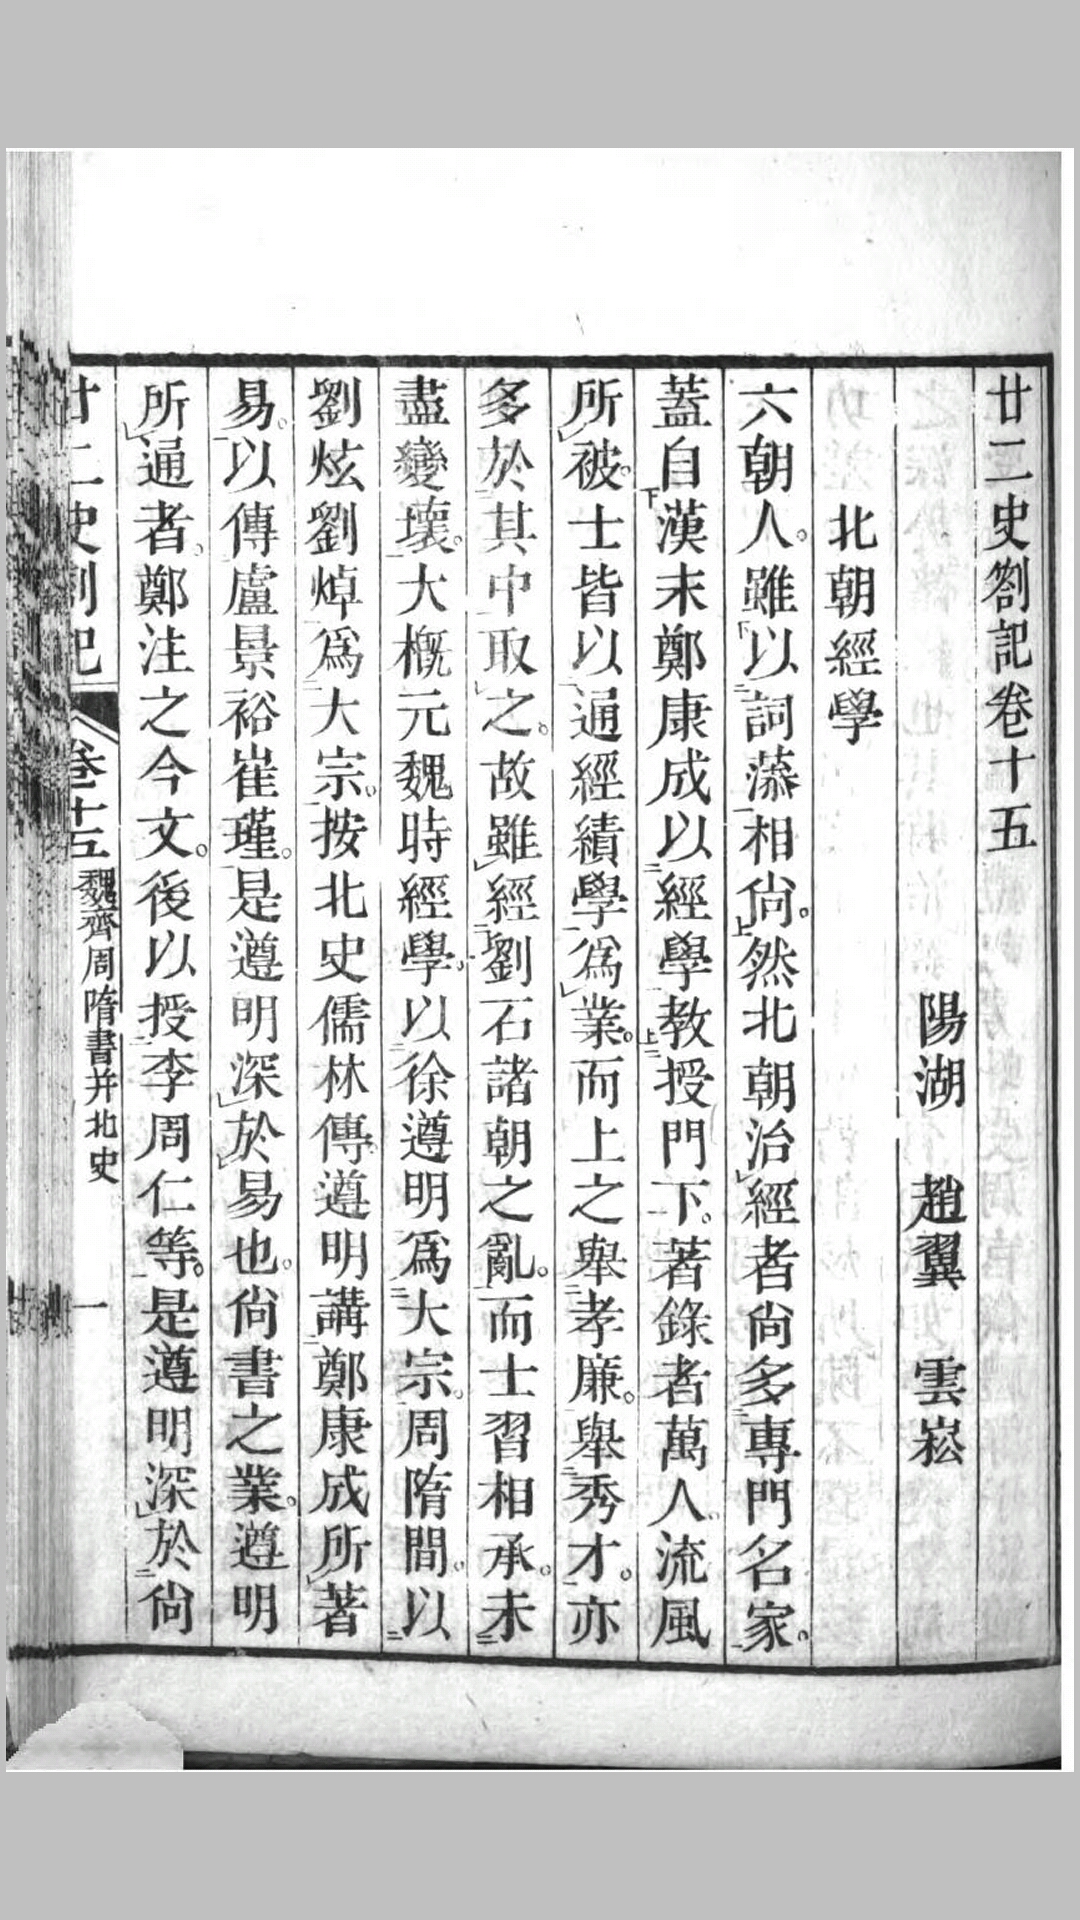 廿二史劄記卷十五
陽湖 趙翼 雲崧
北朝經學
六朝人。雖以詞藻相尙。然北朝治經者尙多專門名家。
蓋自漢末鄭康成以經學敎授門下。著錄者萬人。流風
所被。士皆以通經績學爲業。而上之舉孝廉。舉秀才。亦
多於其中取之。故雖經劉石諸朝之亂。而士習相承。未
盡變壞。大槪元魏時經學。以徐遵明爲大宗。周隋間。以
劉炫劉焯爲大宗。按北史儒林傳。遵明講鄭康成所著
易。以傳盧景裕崔瑾。是遵明深於易也。尙書之業。遵明
所通者。鄭注之今文。後以授李周仁等。是遵明深於尙
廿二史劄記 卷十五 魏齊周隋書并北史 一